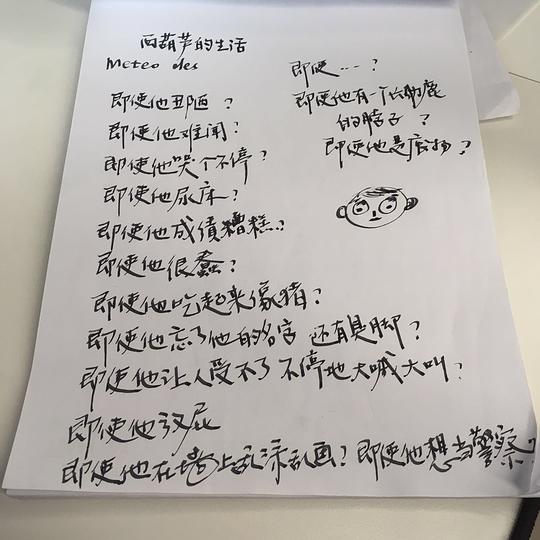 西葫芦的生活
Meteo des
即使他丑陋？
即使他难闻？
即使他哭个不停？
即使他尿床？
即使他成绩糟糕？
即使他很蠢？
即使他吃起来像猪？
即使他忘了他的名字 还有臭脚？
即使他让人受不了 不停地大喊大叫？
即使他放屁
即使他在墙上乱涂乱画？即使他想当警察？
即使……？
即使他有一个长颈鹿
的脖子？
即使他是废物？